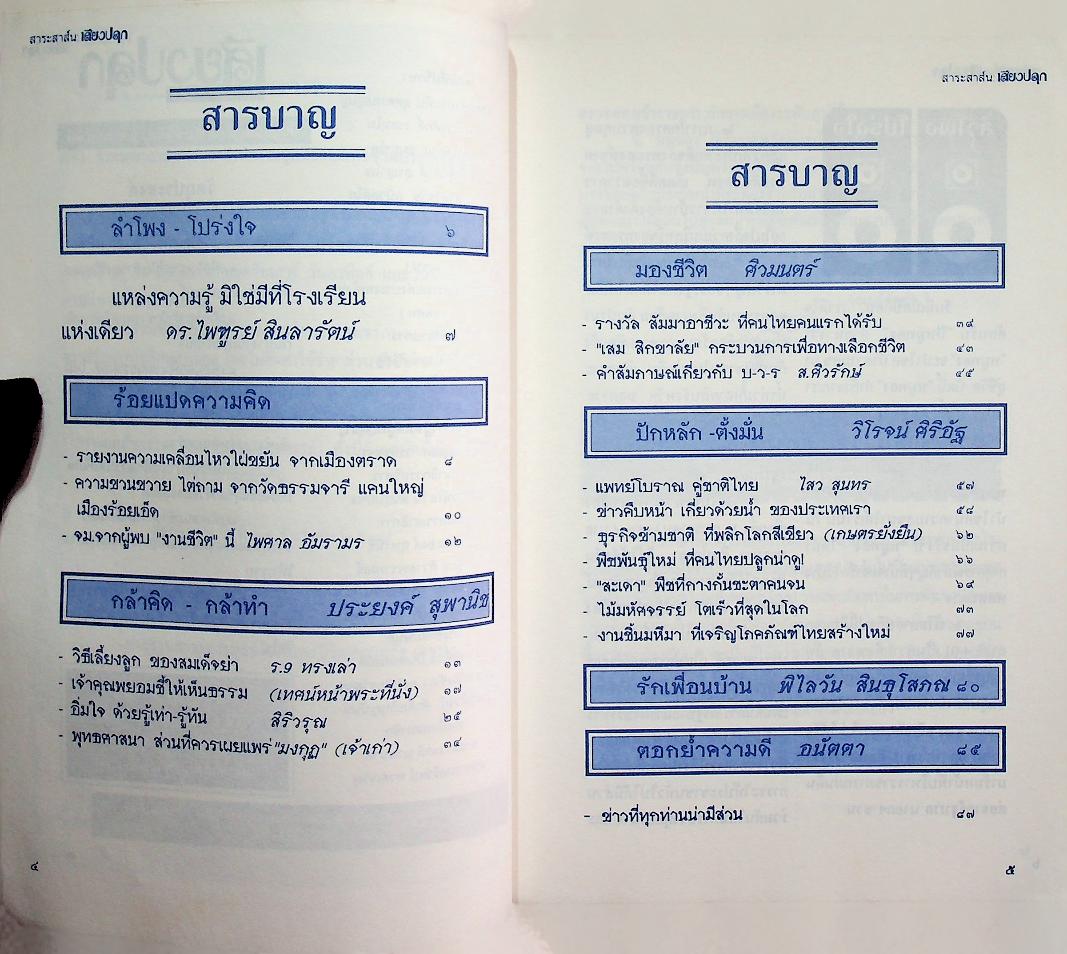 สาระสาส์น เสียวปลุก
สารบาญ
ลำโพง - โปร่งใจ ๖
แหล่งความรู้ มิใช่มีที่โรงเรียน
แห่งเดียว ดร.ไพฑูรย์ สินลารัตน์ ๗
ร้อยแปดความคิด
- รายงานความเคลื่อนไหวใฝ่ขยัน จากเมืองตราด ๘
- ความขวนขวาย ไต่ถาม จากวัดธรรมจารี แคนใหญ่
เมืองร้อยเอ็ด ๑๐
- จม.จากผู้พบ "งานชีวิต" นี้ ไพศาล อัมรามร ๑๒
กล้าคิด - กล้าทำ ประยงค์ สุพานิช
- วิธีเลี้ยงลูก ของสมเด็จย่า ร.9 ทรงเล่า ๑๓
- เจ้าคุณพยอมชี้ให้เห็นธรรม (เทศน์หน้าพระที่นั่ง) ๑๗
- อิ่มใจ ด้วยรู้เท่า-รู้ทัน สิริวรุณ ๒๕
- พุทธศาสนา ส่วนที่ควรเผยแพร่ "มงกุฏ" (เจ้าเก่า) ๓๔
๔
สาระสาส์น เสียวปลุก
สารบาญ
มองชีวิต ศิวมนตร์
- รางวัล สัมมาอาชีวะ ที่คนไทยคนแรกได้รับ ๓๙
- "เสม สิกขาลัย" กระบวนการเพื่อทางเลือกชีวิต ๔๓
- คำสัมภาษณ์เกี่ยวกับ บ-ว-ร ส.ศิวรักษ์ ๔๕
ปักหลัก -ตั้งมั่น วิโรจน์ ศิริอัฐ
- แพทย์โบราณ คู่ชาติไทย ไสว สุนทร ๕๗
- ข่าวคืบหน้า เกี่ยวด้วยน้ำ ของประเทศเรา ๕๘
- ธุรกิจข้ามชาติ ที่พลิกโลกสีเขียว (เกษตรยั่งยืน) ๖๒
- พืชพันธุ์ใหม่ ที่คนไทยปลูกน่าดู! ๖๖
- "สะเดา" พืชที่กางกั้นชะตาคนจน ๖๙
- ไม้มหัศจรรย์ โตเร็วที่สุดในโลก ๗๓
- งานชิ้นมหึมา ที่เจริญโภคภัณฑ์ไทยสร้างใหม่ ๗๗
รักเพื่อนบ้าน พิไลวัน สินธุโสภณ ๘๐
ตอกย้ำความดี อนัตตา ๘๕
- ข่าวที่ทุกท่านน่ามีส่วน ๘๗
๕